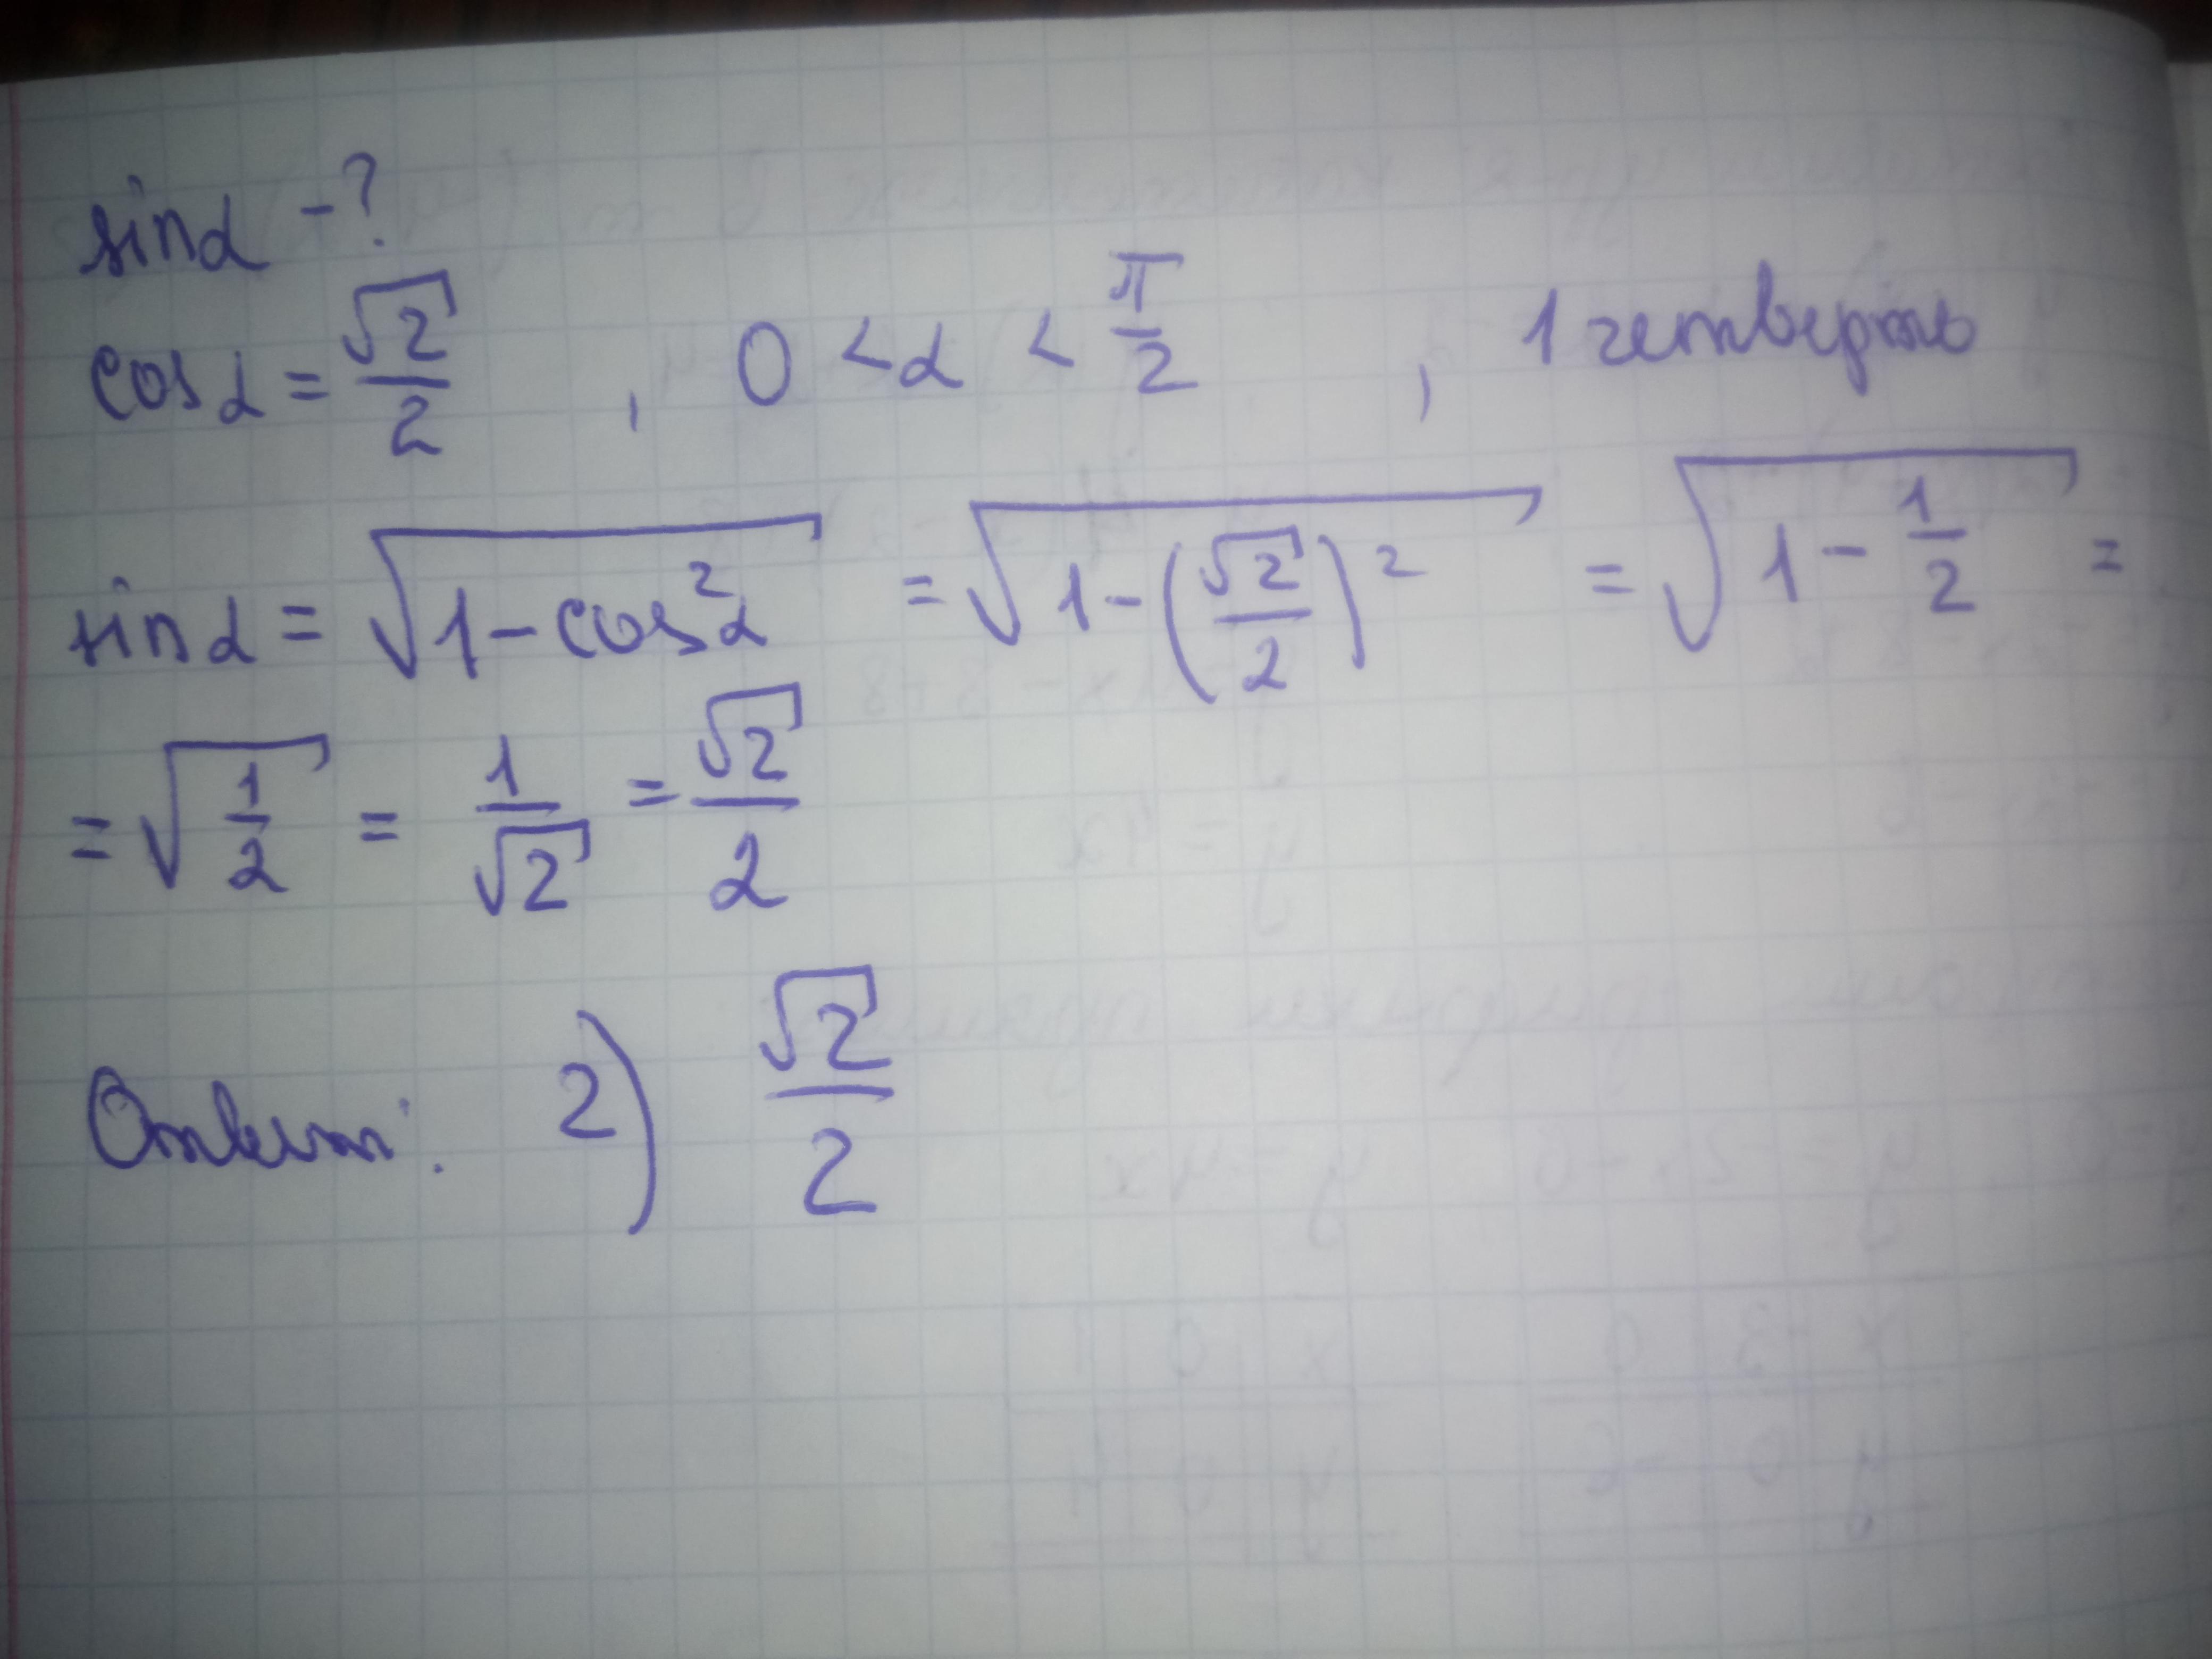 sinα - ?
cosα = √2/2 , 0 < α < π/2 , 1 четверть
sinα = √(1 - cos²α) = √(1 - (√2/2)²) = √(1 - 1/2) =
= √(1/2) = 1/√2 = √2/2
Ответ: 2) √2/2